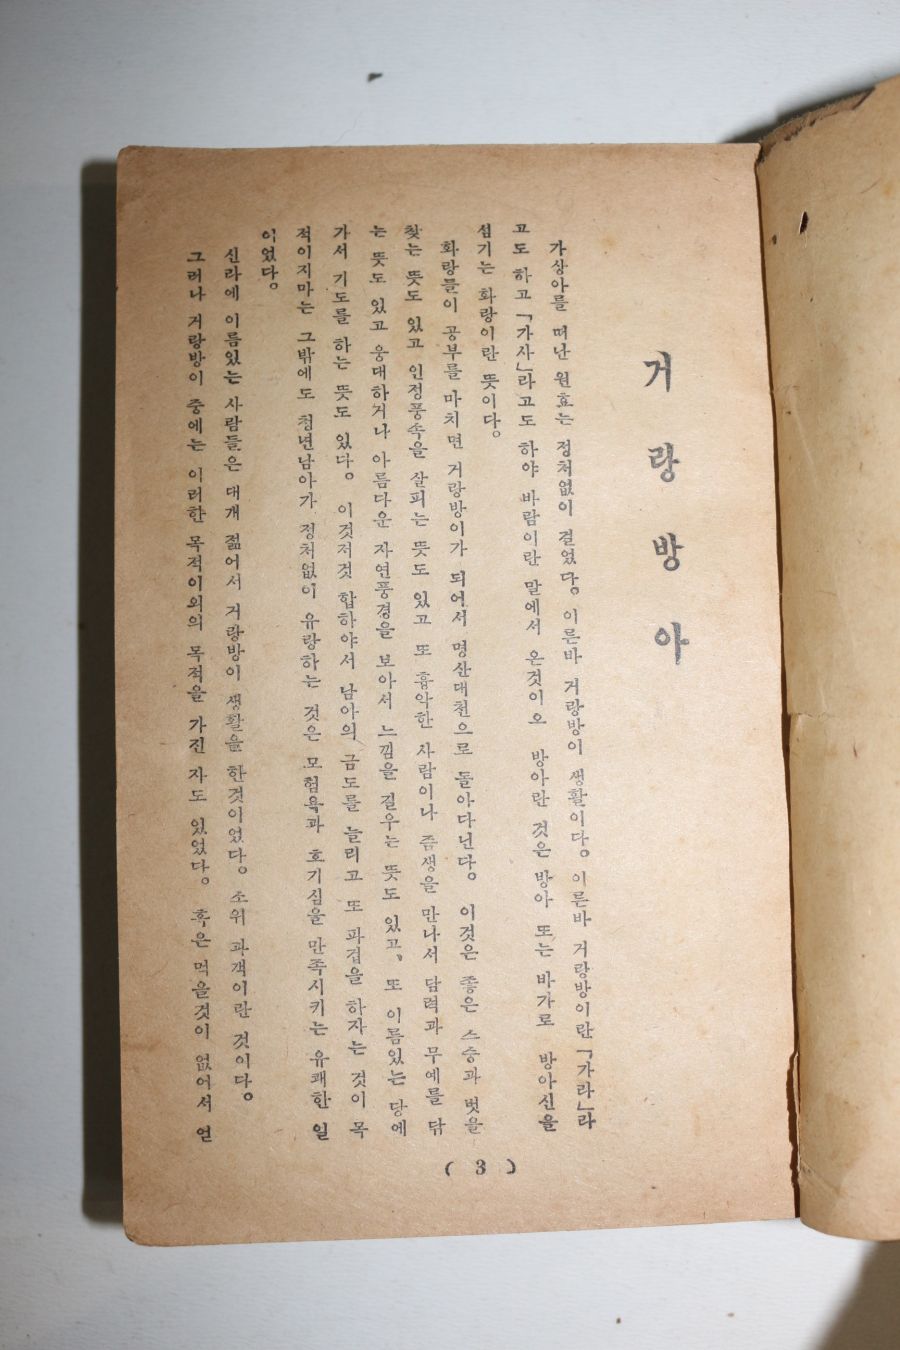 거랑방아
가상아를 떠난 원효는 정처없이 걸었다。이른바 거랑방이 생활이다。이른바 거랑방이란 「가라」라
고도 하고 「가사」라고도 하야 바람이란 말에서 온것이오 방아란 것은 방아 또는 바가로 방아신을
섬기는 화랑이란 뜻이다。
화랑들이 공부를 마치면 거랑방이가 되어서 명산대천으로 돌아다닌다。 이것은 좋은 스승과 벗을
찾는 뜻도 있고 인정풍속을 살피는 뜻도 있고 또 흉악한 사람이나 즘생을 만나서 담력과 무예를 닦
는 뜻도 있고 웅대하거나 아름다운 자연풍경을 보아서 느낌을 길우는 뜻도 있고、또 이름있는 당에
가서 기도를 하는 뜻도 있다。 이것저것 합하야서 남아의 금도를 늘리고 또 파겁을 하자는 것이 목
적이지마는 그밖에도 청년남아가 정처없이 유랑하는 것은 모험욕과 호기심을 만족시키는 유쾌한 일
이었다。
신라에 이름있는 사람들은 대개 젊어서 거랑방이 생활을 한것이었다。소위 과객이란 것이다。
그러나 거랑방이 중에는 이러한 목적이외의 목적을 가진 자도 있었다。 혹은 먹을것이 없어서 얻
( 3 )